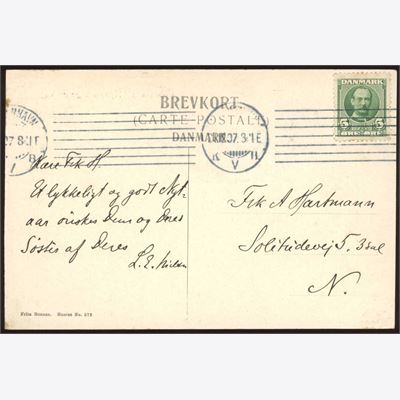 BREVKORT.
(CARTE POSTALE)
DANMARK
DANMARK
5 5
ØRE ØRE
Kære Frk H.
Et lykkeligt og godt Nyt-
aar ønskes Dem og Deres
Søster af Deres
L. E. Nielsen
Frk A Hartmann
Solitudevej 5. 3 sal
N.
Fritz Benzen. Neutral No. 572